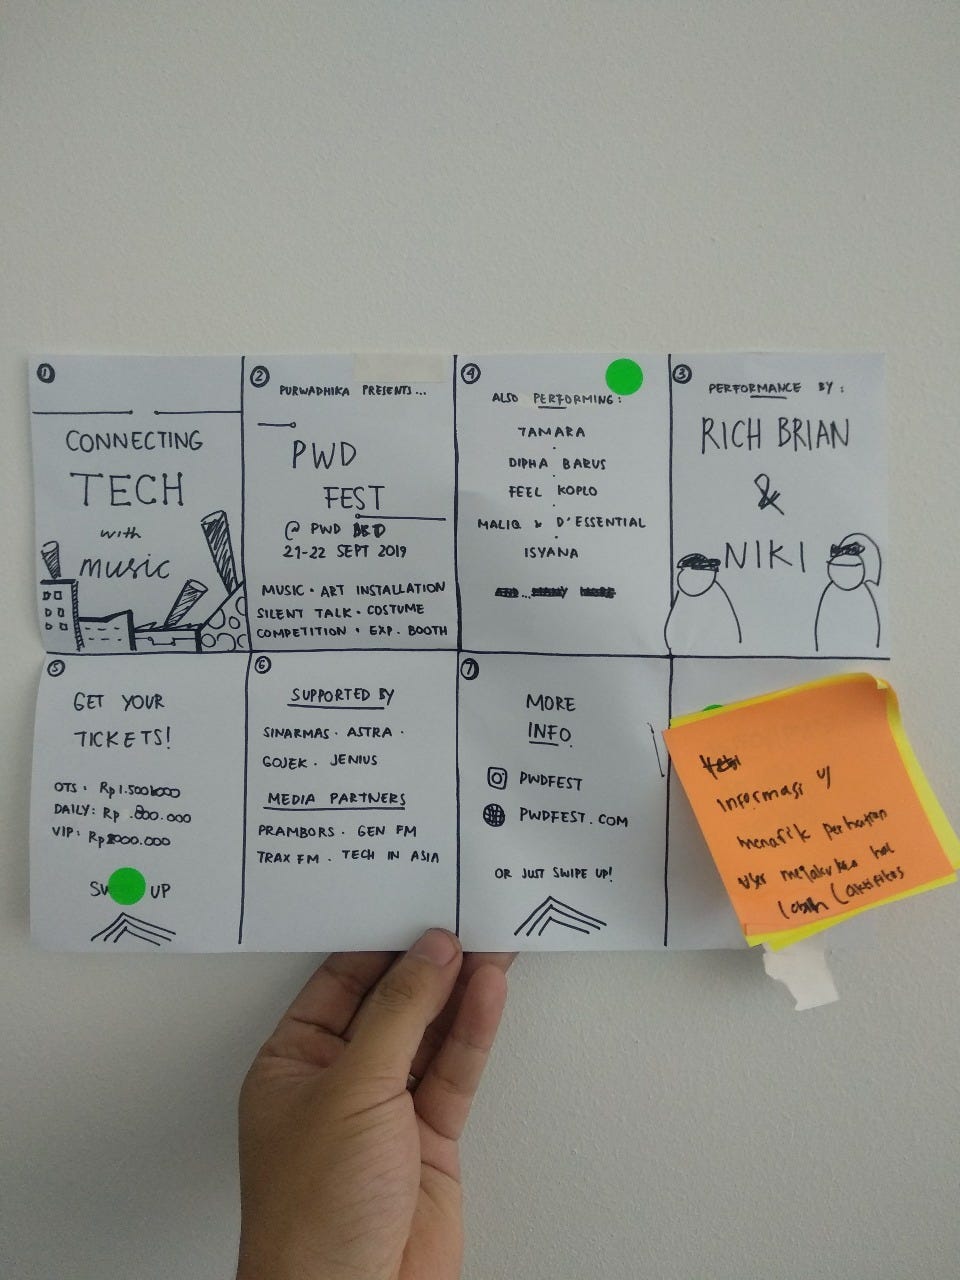 1
CONNECTING
TECH
with
music
2
PURWADHIKA PRESENTS...
PWD
FEST
@ PWD BSD
21-22 SEPT 2019
MUSIC · ART INSTALLATION
SILENT TALK · COSTUME
COMPETITION · EXP. BOOTH
4
ALSO PERFORMING:
TAMARA
DIPHA BARUS
FEEL KOPLO
MALIQ & D'ESSENTIAL
ISYANA
3
PERFORMANCE BY:
RICH BRIAN
&
NIKI
5
GET YOUR
TICKETS!
OTS:
DAILY: Rp .800.000
VIP:
UP
6
SUPPORTED BY
SINARMAS · ASTRA ·
GOJEK · JENIUS
MEDIA PARTNERS
PRAMBORS · GEN FM
TRAX FM · TECH IN ASIA
7
MORE
INFO
PWDFEST
PWDFEST.COM
OR JUST SWIPE UP!
Informasi
menarik